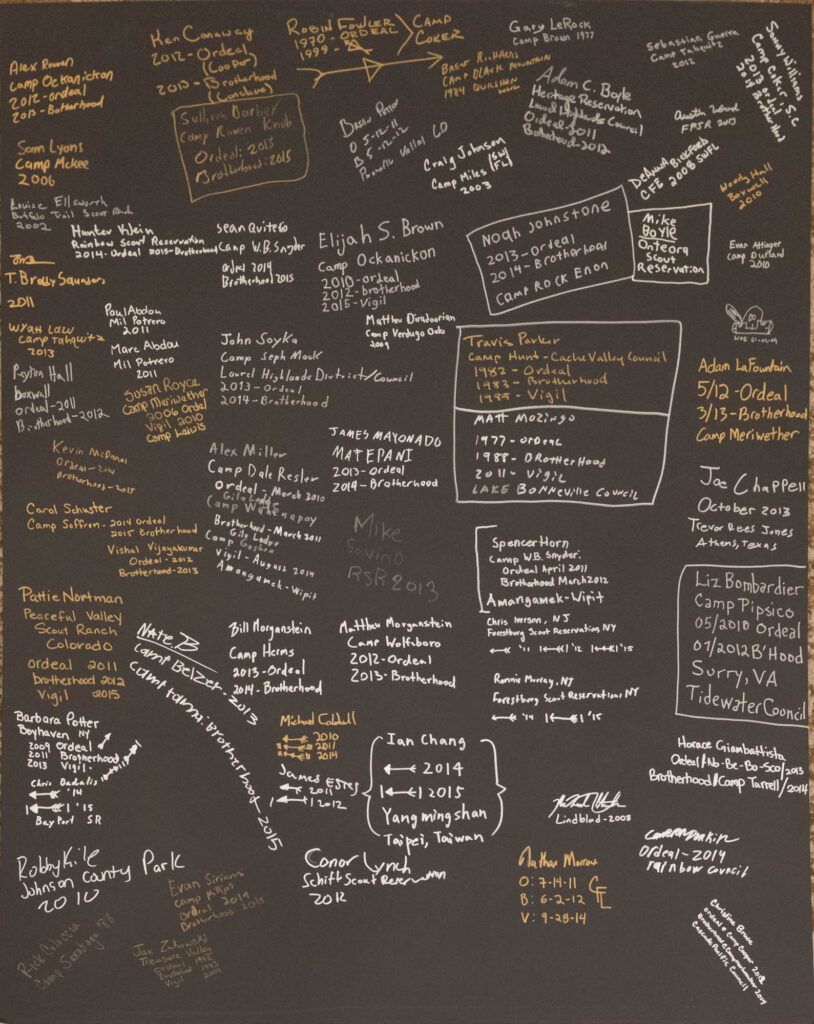 Alex Rowen
Camp Ockanickon
2012-Ordeal
2013-Brotherhood
Ken Conaway
2012-Ordeal
(Cooper)
2013-Brotherhood
(Conclave)
Robin Fowler
1970-ORDEAL
1999-
CAMP
COKER
Brent Richards
Camp Black Mountain
1984
Gary LeRock
Camp Brown 1977
Sebastian Guerra
Camp Tahquitz
2012
Sandy Williams
Camp Coker, S.C
2013 Ordeal
2014 Brotherhood
Sullivan Barber
Camp Rowen Knob
Ordeal: 2013
Brotherhood: 2015
O 5-12-11
B 5-12-12
Adam C. Boyle
Heritage Reservation
Laurel Highlands Council
Ordeal-2011
Brotherhood-2012
FPSR 2013
Sam Lyons
Camp McKee
2006
Craig Johnson
Camp Miles (SW FL)
2003
Bickford
CFE 2008 SWFL
Woody Hall
Boxwell
2010
Louise Ellsworth
Buffalo Trail Scout Ranch
2002
Hunter Klein
Rainbow Scout Reservation
2014-Ordeal 2015-Brotherhood
Sean Quitero
Camp W.B. Snyder
Ordeal 2014
Brotherhood 2015
Elijah S. Brown
Camp Ockanickon
2010-ordeal
2012-brotherhood
2015-Vigil
Noah Johnstone
2013-Ordeal
2014-Brotherhood
Camp Rock Enon
Mike
Boyle
Onteora
Scout
Reservation
Evan Attinger
Camp Durland
2010
T. Brody Saunders
2011
Wyan Law
Camp Tahquitz
2013
Paul Abdou
Mil Potrero
2011
Marc Abdou
Mil Potrero
2011
Matthew Diradoorian
Camp Verdugo Oaks
2009
John Soyka
Camp Seph Mack
Laurel Highlands District/Council
2013-Ordeal
2014-Brotherhood
Travis Parker
Camp Hunt-Cache Valley Council
1982-Ordeal
1983-Brotherhood
1985-Vigil
Matt Mozingo
1977-ordeal
1988-Brotherhood
2011-Vigil
Lake Bonneville Council
Adam LaFountain
5/12-Ordeal
3/13-Brotherhood
Camp Meriwether
Peyton Hall
boxwell
ordeal-2011
Brotherhood-2012
Susan Royce
Camp Meriwether
2006 Ordeal
Vigil 2010
Camp Lewis
Kevin McManus
Ordeal-2014
Brotherhood-2015
Alex Miller
Camp Dale Resler
Ordeal-March 2010
Gila Lodge
Camp Wehinapay
Brotherhood-March 2011
Gila Lodge
Camp Goshen
Vigil-August 2014
Amangamek-Wipit
James Mayonado
Matepani
2013-Ordeal
2014-Brotherhood
Joe Chappell
October 2013
Trevor Rees Jones
Athens, Texas
Carol Schuster
Camp Saffran-2014 Ordeal
2015 Brotherhood
Vishal Vijayakumar
Ordeal-2012
Brotherhood-2013
Mike
Savino
RSR 2013
Spencer Horn
Camp W.B. Snyder.
Ordeal April 2011
Brotherhood March 2012
Amangamek-Wipit
Chris Iverson, NJ
Forestburg Scout Reservation, NY
'11 '12 '15
Liz Bombardier
Camp Pipsico
05/2010 Ordeal
07/2012 B'Hood
Surry, VA
Tidewater Council
Pattie Nortman
Peaceful Valley
Scout Ranch
Colorado
ordeal 2011
brotherhood 2012
Vigil 2015
Nate.B
Camp Belzer-2013
Brotherhood 2015
Bill Morganstein
Camp Herms
2013-Ordeal
2014-Brotherhood
Matthew Morganstein
Camp Wolfeboro
2012-Ordeal
2013-Brotherhood
Ronnie Murray, NJ
Forestburg Scout Reservations NY
'14 '15
Barbara Potter
Boyhaven NY
2009 Ordeal
2011 Brotherhood
2013 Vigil-
Chris
'14
'15
Bay Port SR
Michael
2010
2011
2014
James Estes
2011
2012
Ian Chang
2014
2015
Yangmingshan
Taipei, Taiwan
Horace Giambattista
Ordeal/No-Be-Bo-Sco/2013
Brotherhood/Camp Turrell/2014
Lindblad-2008
Robby Kile
Johnson County Park
2010
Conor Lynch
Schiff Scout Reservation
2012
Nathan Morrow
O: 7-14-11
B: 6-2-12
V: 9-28-14
ordeal-2014
rainbow council
Evan
Camp Phillips
Ordeal 2014
Brotherhood 2015
Camp Saratoga 88
Jan Zukowski
Treasure Valley
Ordeal 1992
Vigil
Christine Bruce
Cascade Pacific Council